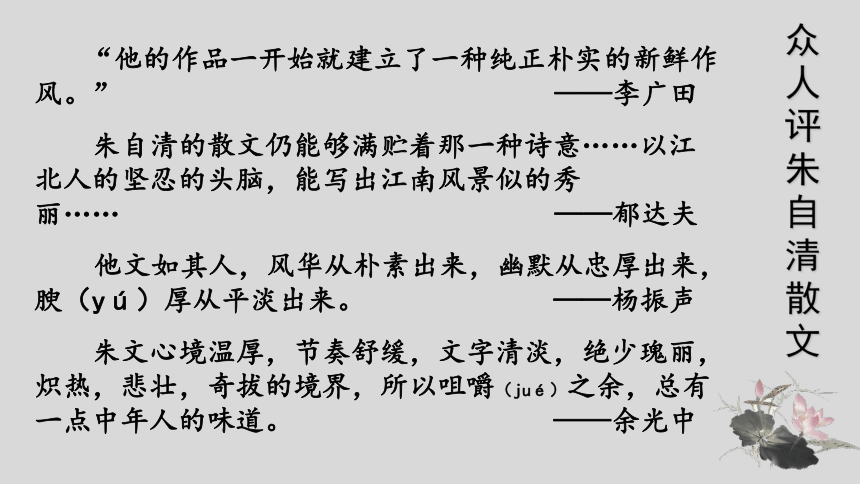 众人评朱自清散文
“他的作品一开始就建立了一种纯正朴实的新鲜作
风。” ——李广田
朱自清的散文仍能够满贮着那一种诗意……以江
北人的坚忍的头脑，能写出江南风景似的秀
丽…… ——郁达夫
他文如其人，风华从朴素出来，幽默从忠厚出来，
腴（yú）厚从平淡出来。 ——杨振声
朱文心境温厚，节奏舒缓，文字清淡，绝少瑰丽，
炽热，悲壮，奇拔的境界，所以咀嚼（jué）之余，总有
一点中年人的味道。 ——余光中